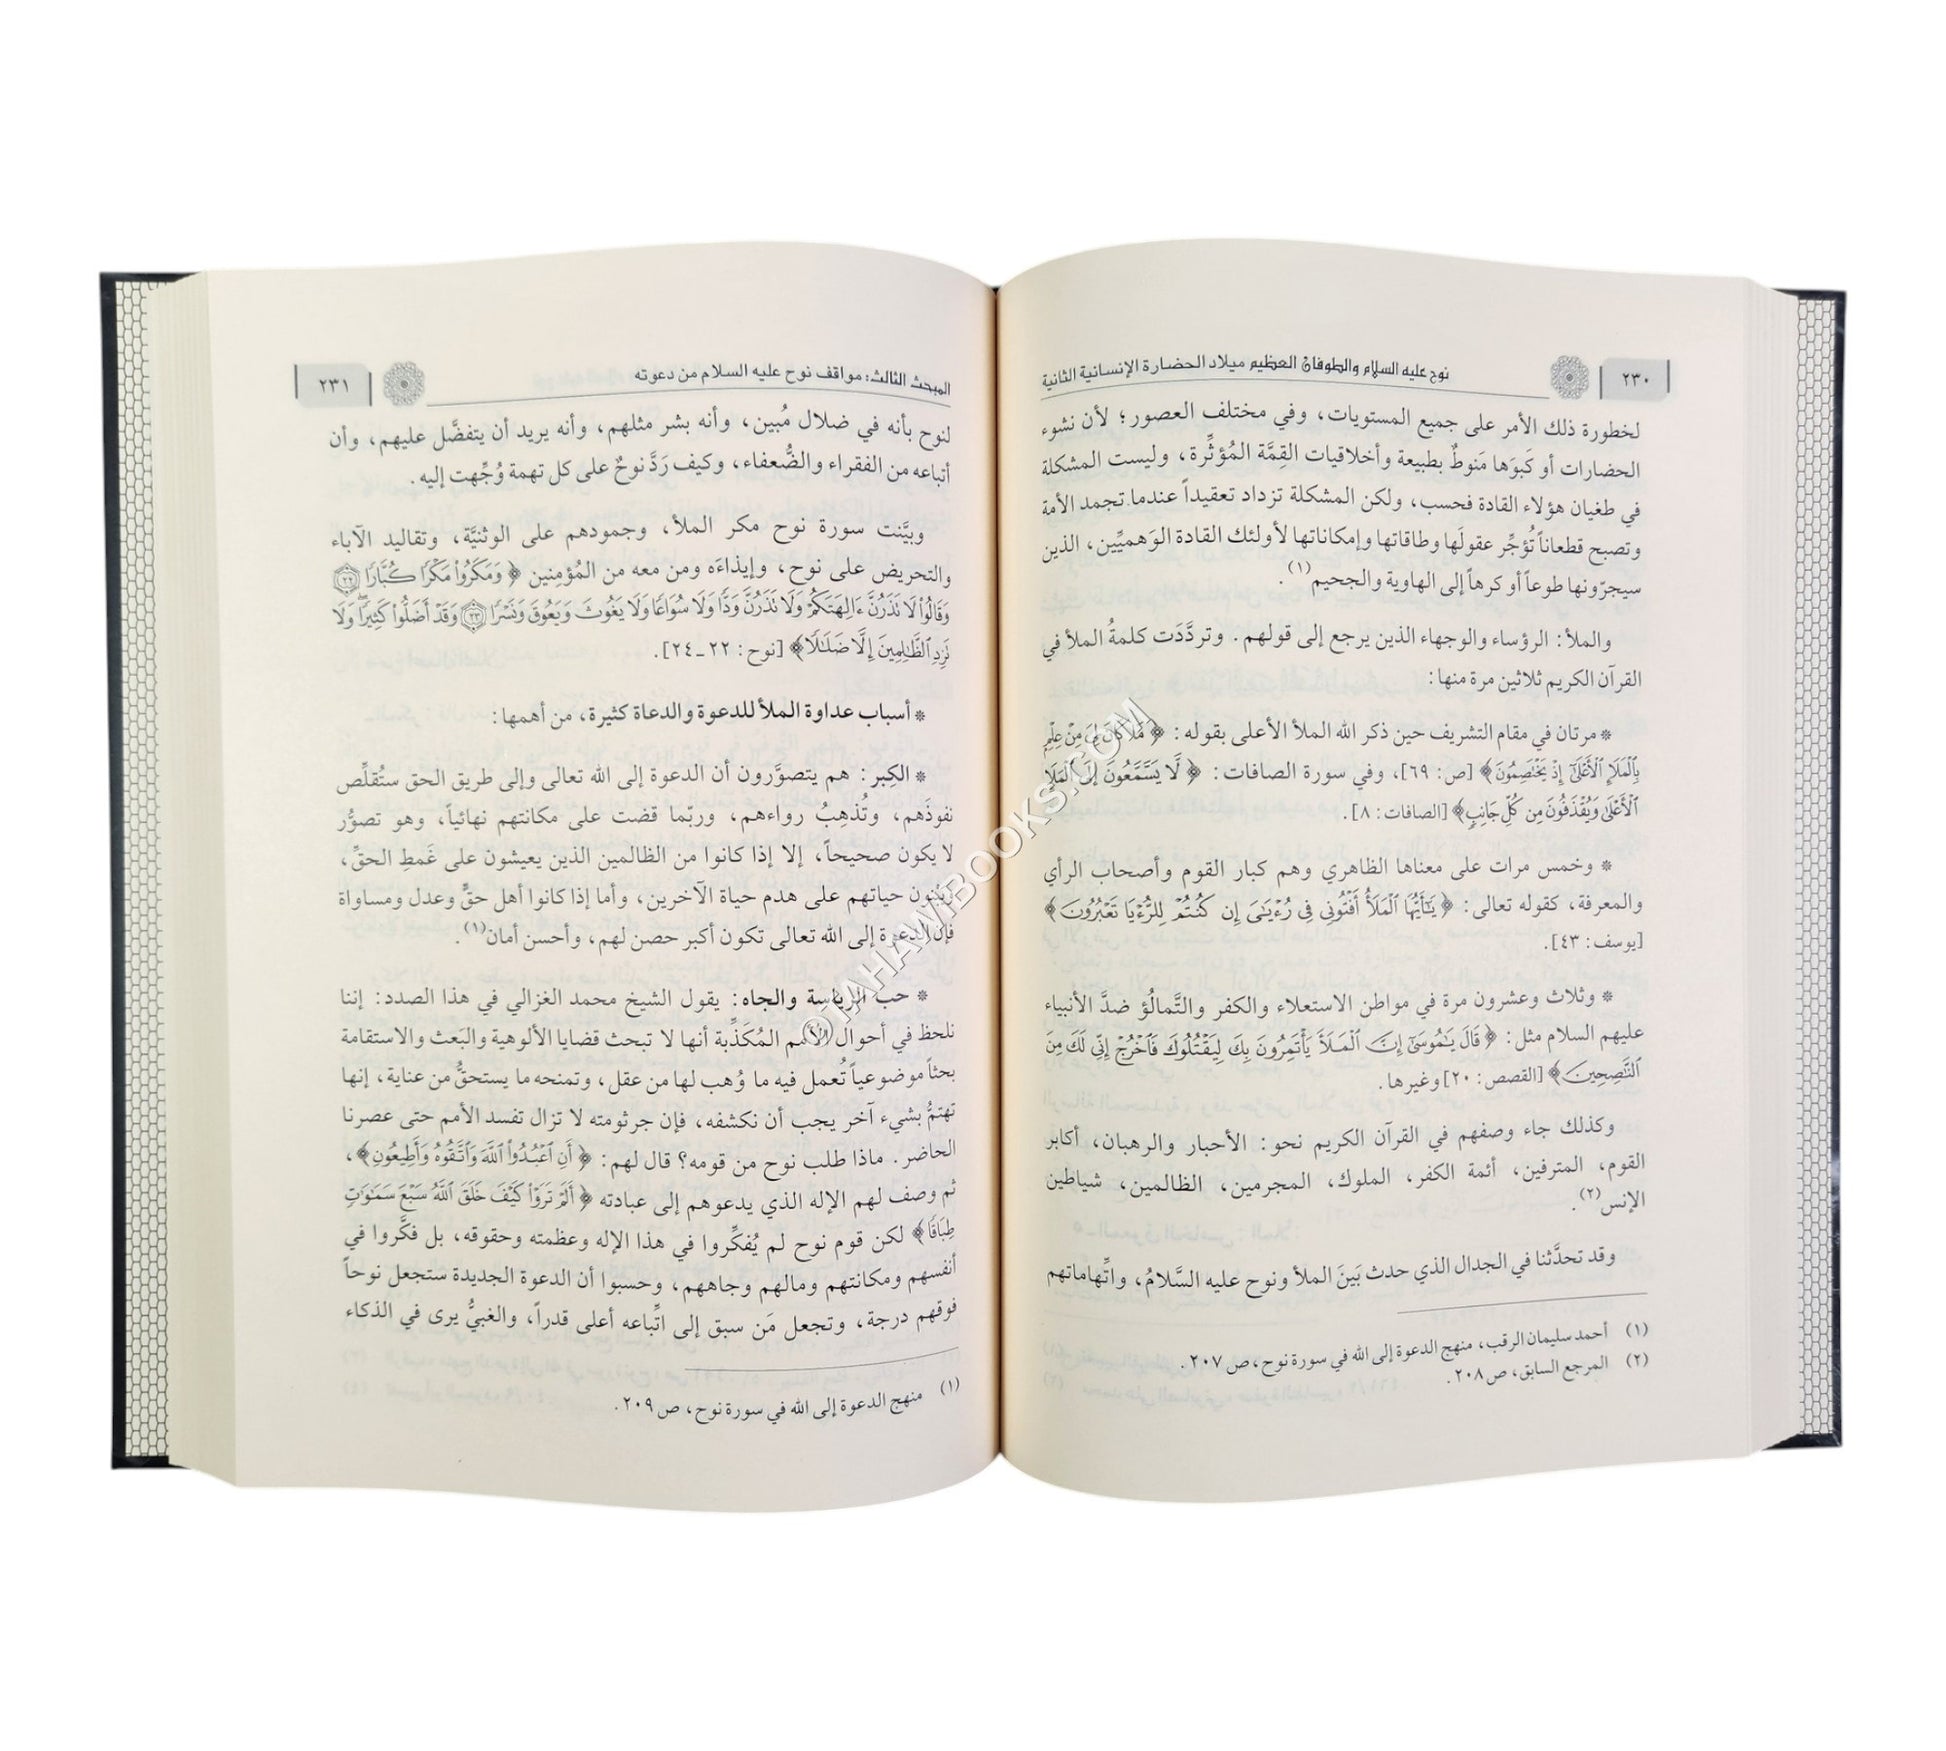 ٢٣٠
نوح عليه السلام والطوفان العظيم ميلاد الحضارة الإنسانية الثانية
لخطورة ذلك الأمر على جميع المستويات، وفي مختلف العصور؛ لأن نشوء
الحضارات أو كَبوَها مَنوطٌ بطبيعة وأخلاقيات القِمَّة المُؤثِّرة، وليست المشكلة
في طغيان هؤلاء القادة فحسب، ولكن المشكلة تزداد تعقيداً عندما تجمد الأمة
وتصبح قطعاناً تُؤجِّر عقولَها وطاقاتها وإمكاناتها لأولئك القادة الوَهميِّين، الذين
سيجرّونها طوعاً أو كرهاً إلى الهاوية والجحيم(١).
والملأ: الرؤساء والوجهاء الذين يرجع إلى قولهم. وتردَّدَت كلمةُ الملأ في
القرآن الكريم ثلاثين مرة منها:
* مرتان في مقام التشريف حين ذكر الله الملأ الأعلى بقوله: ﴿مَا كَانَ لِىَ مِنْ عِلْمٍ
بِٱلْمَلَإِ ٱلْأَعْلَىٰٓ إِذْ يَخْتَصِمُونَ﴾ [ص: ٦٩]، وفي سورة الصافات: ﴿لَّا يَسَّمَّعُونَ إِلَى ٱلْمَلَإِ
ٱلْأَعْلَىٰ وَيُقْذَفُونَ مِن كُلِّ جَانِبٍ﴾ [الصافات: ٨].
* وخمس مرات على معناها الظاهري وهم كبار القوم وأصحاب الرأي
والمعرفة، كقوله تعالى: ﴿يَٰٓأَيُّهَا ٱلْمَلَأُ أَفْتُونِى فِى رُءْيَٰىَ إِن كُنتُمْ لِلرُّءْيَا تَعْبُرُونَ﴾
[يوسف: ٤٣].
* وثلاث وعشرون مرة في مواطن الاستعلاء والكفر والتَّمالُؤ ضدَّ الأنبياء
عليهم السلام مثل: ﴿قَالَ يَٰمُوسَىٰٓ إِنَّ ٱلْمَلَأَ يَأْتَمِرُونَ بِكَ لِيَقْتُلُوكَ فَٱخْرُجْ إِنِّى لَكَ مِنَ
ٱلنَّٰصِحِينَ﴾ [القصص: ٢٠] وغيرها.
وكذلك جاء وصفهم في القرآن الكريم نحو: الأحبار والرهبان، أكابر
القوم، المترفين، أئمة الكفر، الملوك، المجرمين، الظالمين، شياطين
الإنس(٢).
وقد تحدَّثنا في الجدال الذي حدث بَينَ الملأ ونوح عليه السَّلامُ، واتِّهاماتهم
(١) أحمد سليمان الرقب، منهج الدعوة إلى الله في سورة نوح، ص ٢٠٧.
(٢) المرجع السابق، ص ٢٠٨.
المبحث الثالث: مواقف نوح عليه السلام من دعوته
٢٣١
لنوح بأنه في ضلال مُبين، وأنه بشر مثلهم، وأنه يريد أن يتفضَّل عليهم، وأن
أتباعه من الفقراء والضُّعفاء، وكيف رَدَّ نوحٌ على كل تهمة وُجِّهت إليه.
وبيَّنت سورة نوح مكر الملأ، وجمودهم على الوثنيَّة، وتقاليد الآباء
والتحريض على نوح، وإيذاءَه ومن معه من المُؤمِنين ﴿وَمَكَرُوا۟ مَكْرًا كُبَّارًا ٢٢
وَقَالُوا۟ لَا تَذَرُنَّ ءَالِهَتَكُمْ وَلَا تَذَرُنَّ وَدًّا وَلَا سُوَاعًا وَلَا يَغُوثَ وَيَعُوقَ وَنَسْرًا ٢٣ وَقَدْ أَضَلُّوا۟ كَثِيرًا ۖ وَلَا
تَزِدِ ٱلظَّٰلِمِينَ إِلَّا ضَلَٰلًا﴾ [نوح: ٢٢ ـ ٢٤].
* أسباب عداوة الملأ للدعوة والدعاة كثيرة، من أهمها:
* الكِبر: هم يتصوَّرون أن الدعوة إلى الله تعالى وإلى طريق الحق ستُقلِّص
نفوذَهم، وتُذهِبُ رواءهم، وربّما قضت على مكانتهم نهائياً، وهو تصوُّر
لا يكون صحيحاً، إلا إذا كانوا من الظالمين الذين يعيشون على غَمطِ الحقِّ،
ويَبْنون حياتهم على هدم حياة الآخرين، وأما إذا كانوا أهل حقٍّ وعدل ومساواة
فإن الدعوة إلى الله تعالى تكون أكبر حصن لهم، وأحسن أمان(١).
* حب الرياسة والجاه: يقول الشيخ محمد الغزالي في هذا الصدد: إننا
نلحظ في أحوال الأمم المُكَذِّبة أنها لا تبحث قضايا الألوهية والبَعث والاستقامة
بحثاً موضوعياً تُعمل فيه ما وُهب لها من عقل، وتمنحه ما يستحقُّ من عناية، إنها
تهتمُّ بشيء آخر يجب أن نكشفه، فإن جرثومته لا تزال تفسد الأمم حتى عصرنا
الحاضر. ماذا طلب نوح من قومه؟ قال لهم: ﴿أَنِ ٱعْبُدُوا۟ ٱللَّهَ وَٱتَّقُوهُ وَأَطِيعُونِ﴾،
ثم وصف لهم الإله الذي يدعوهم إلى عبادته ﴿أَلَمْ تَرَوْا۟ كَيْفَ خَلَقَ ٱللَّهُ سَبْعَ سَمَٰوَٰتٍ
طِبَاقًا﴾ لكن قوم نوح لم يُفكِّروا في هذا الإله وعظمته وحقوقه، بل فكَّروا في
أنفسهم ومكانتهم ومالهم وجاههم، وحسبوا أن الدعوة الجديدة ستجعل نوحاً
فوقهم درجة، وتجعل مَن سبق إلى اتِّباعه أعلى قدراً، والغبيُّ يرى في الذكاء
(١) منهج الدعوة إلى الله في سورة نوح، ص ٢٠٩.
TAHAWIBOOKS.COM